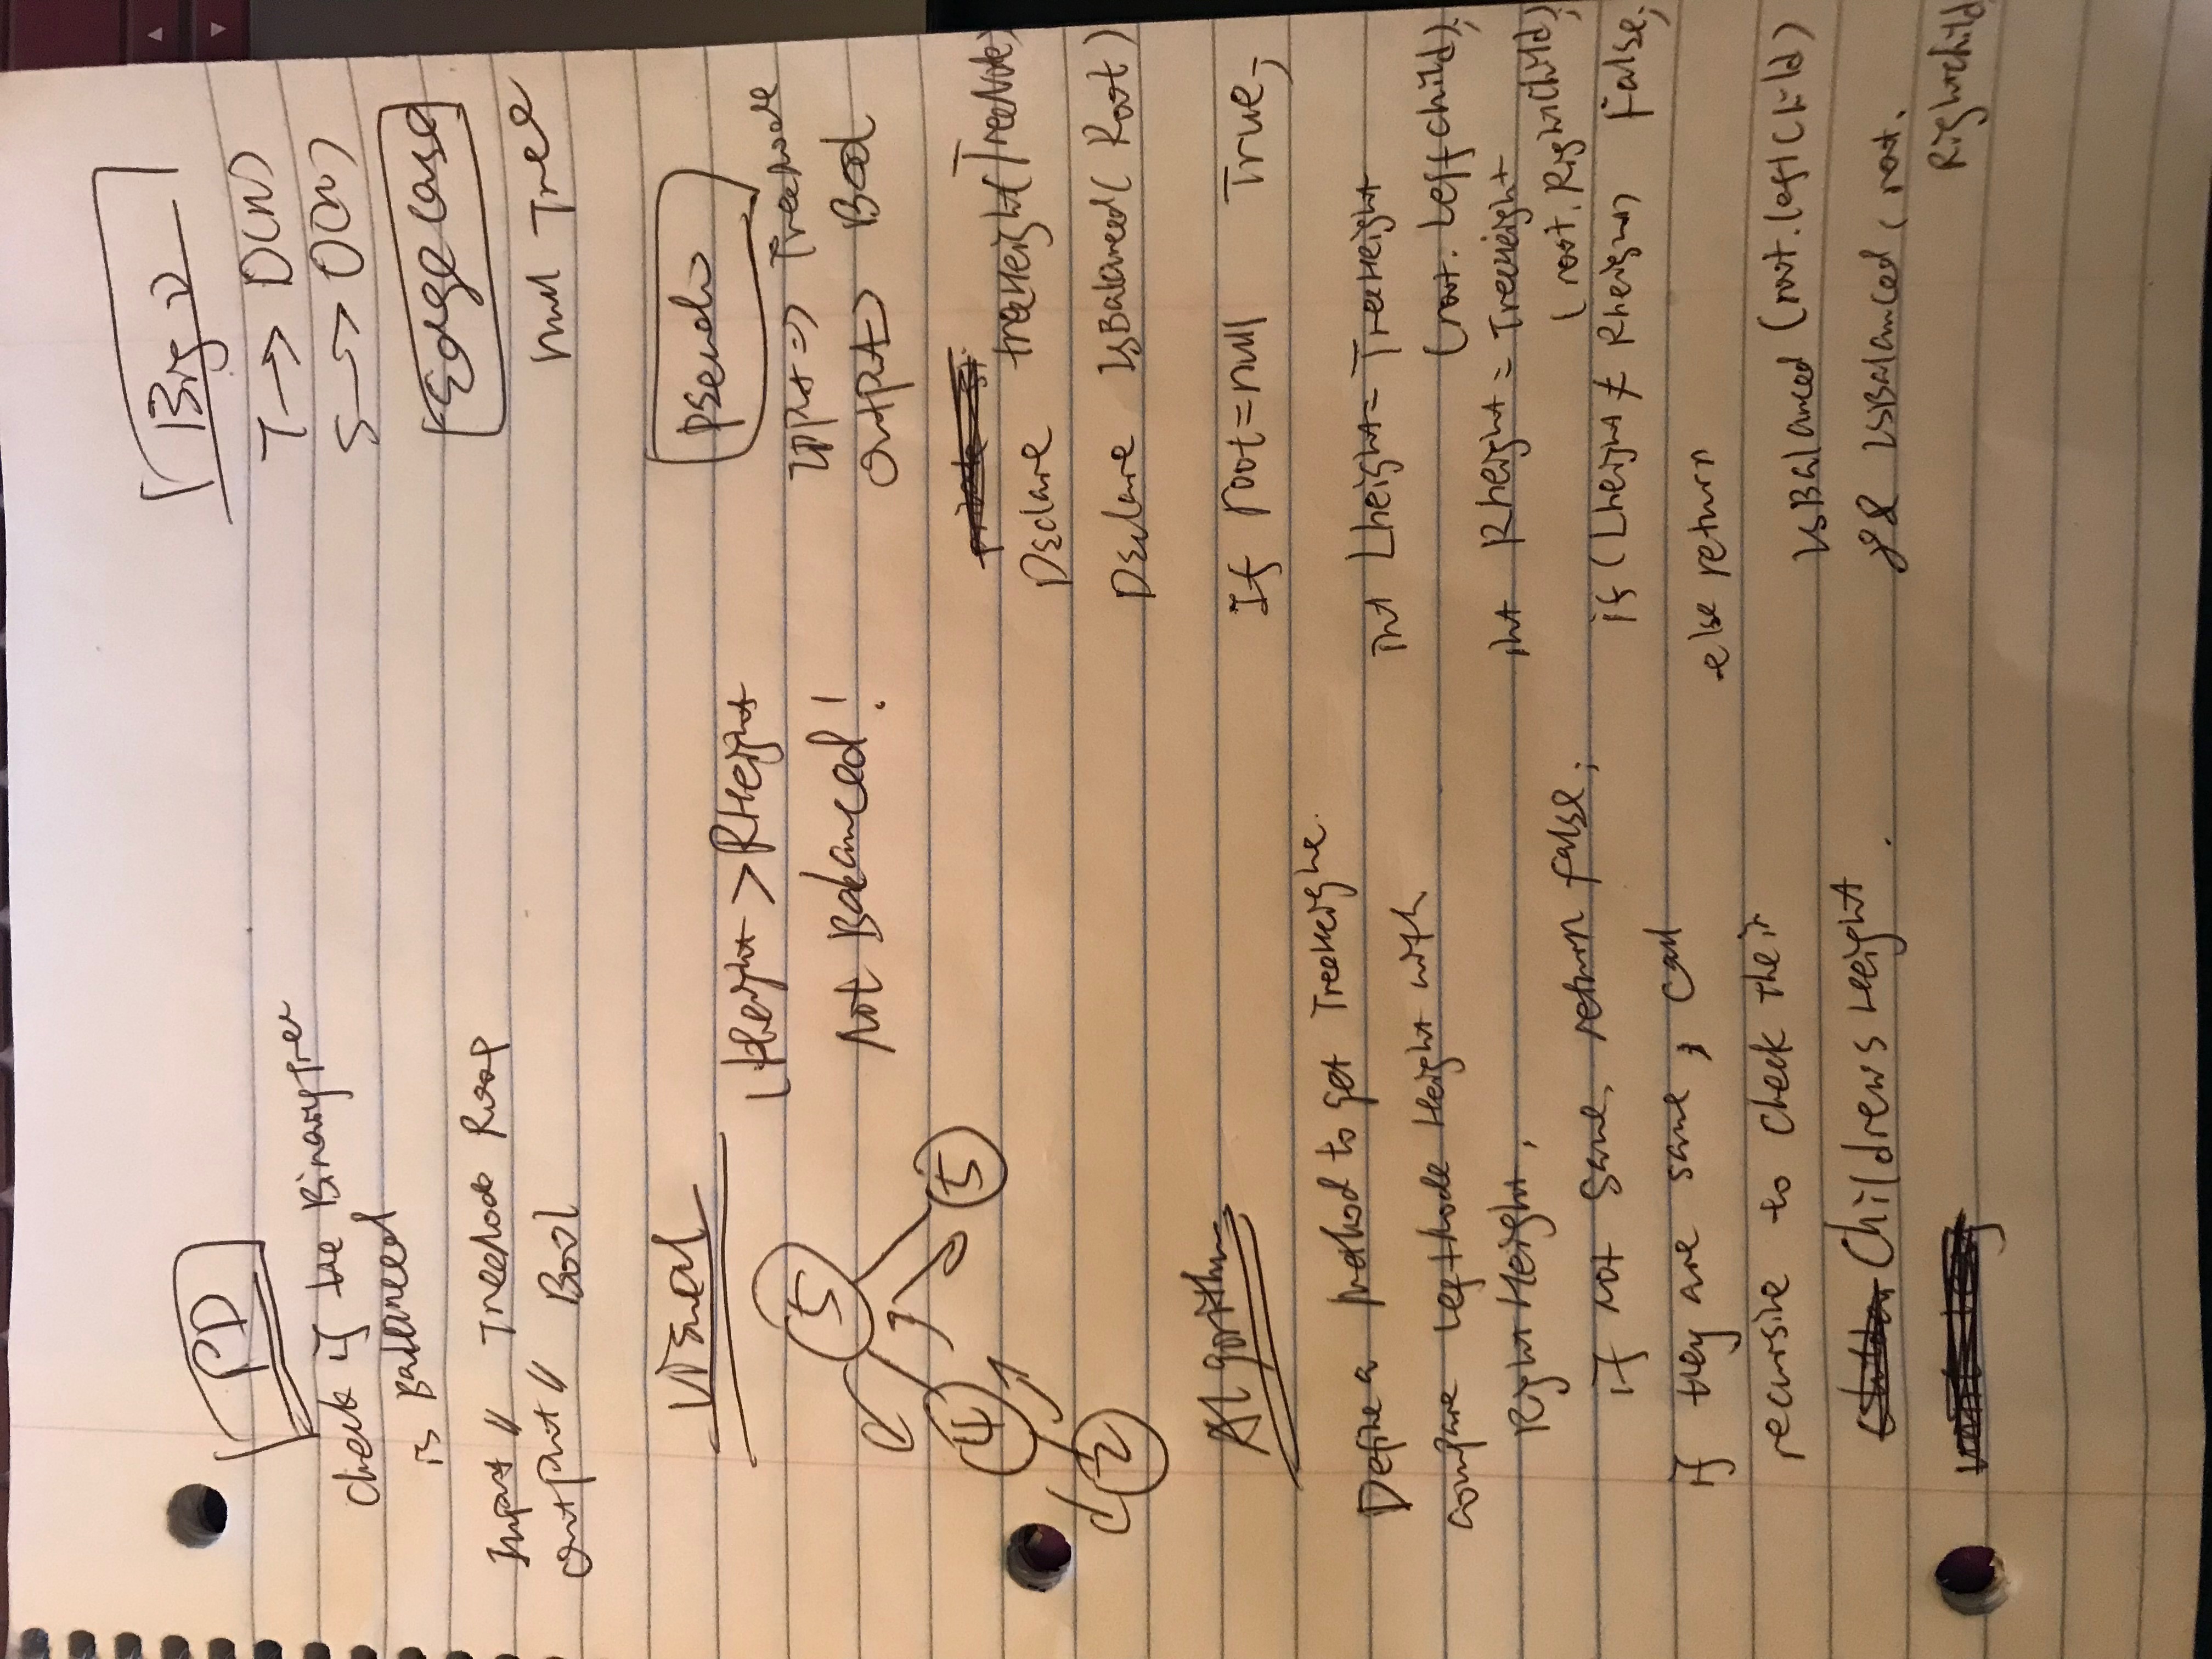 PD
Check if the BinaryTree
is Balanced
Input // TreeNode Root
Output // Bool
Visual
5
4
5
2
LHeight > RHeight
Not Balanced!
Algorithm
Define a Method to get TreeHeight.
compare LeftNode Height with
Right Height,
if not same, return false;
if they are same, call
recursive to check their
Children's Height.
Big O
T → O(N)
S → O(N)
Edge Case
Null Tree
Pseudo
Input => TreeNode
Output => Bool
Declare treeHeight(TreeNode)
Declare IsBalanced( Root )
If root = null True;
int Lheight = TreeHeight
(root. Leftchild);
int Rheight = TreeHeight
( root. RightChild);
if (Lheight ≠ Rheight) False;
else return
IsBalanced (root.leftChild)
&& IsBalanced ( root.
Rightchild